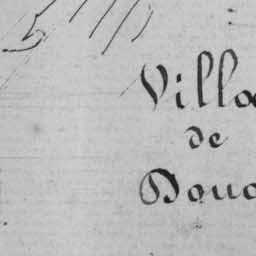 Villa
de
Douc